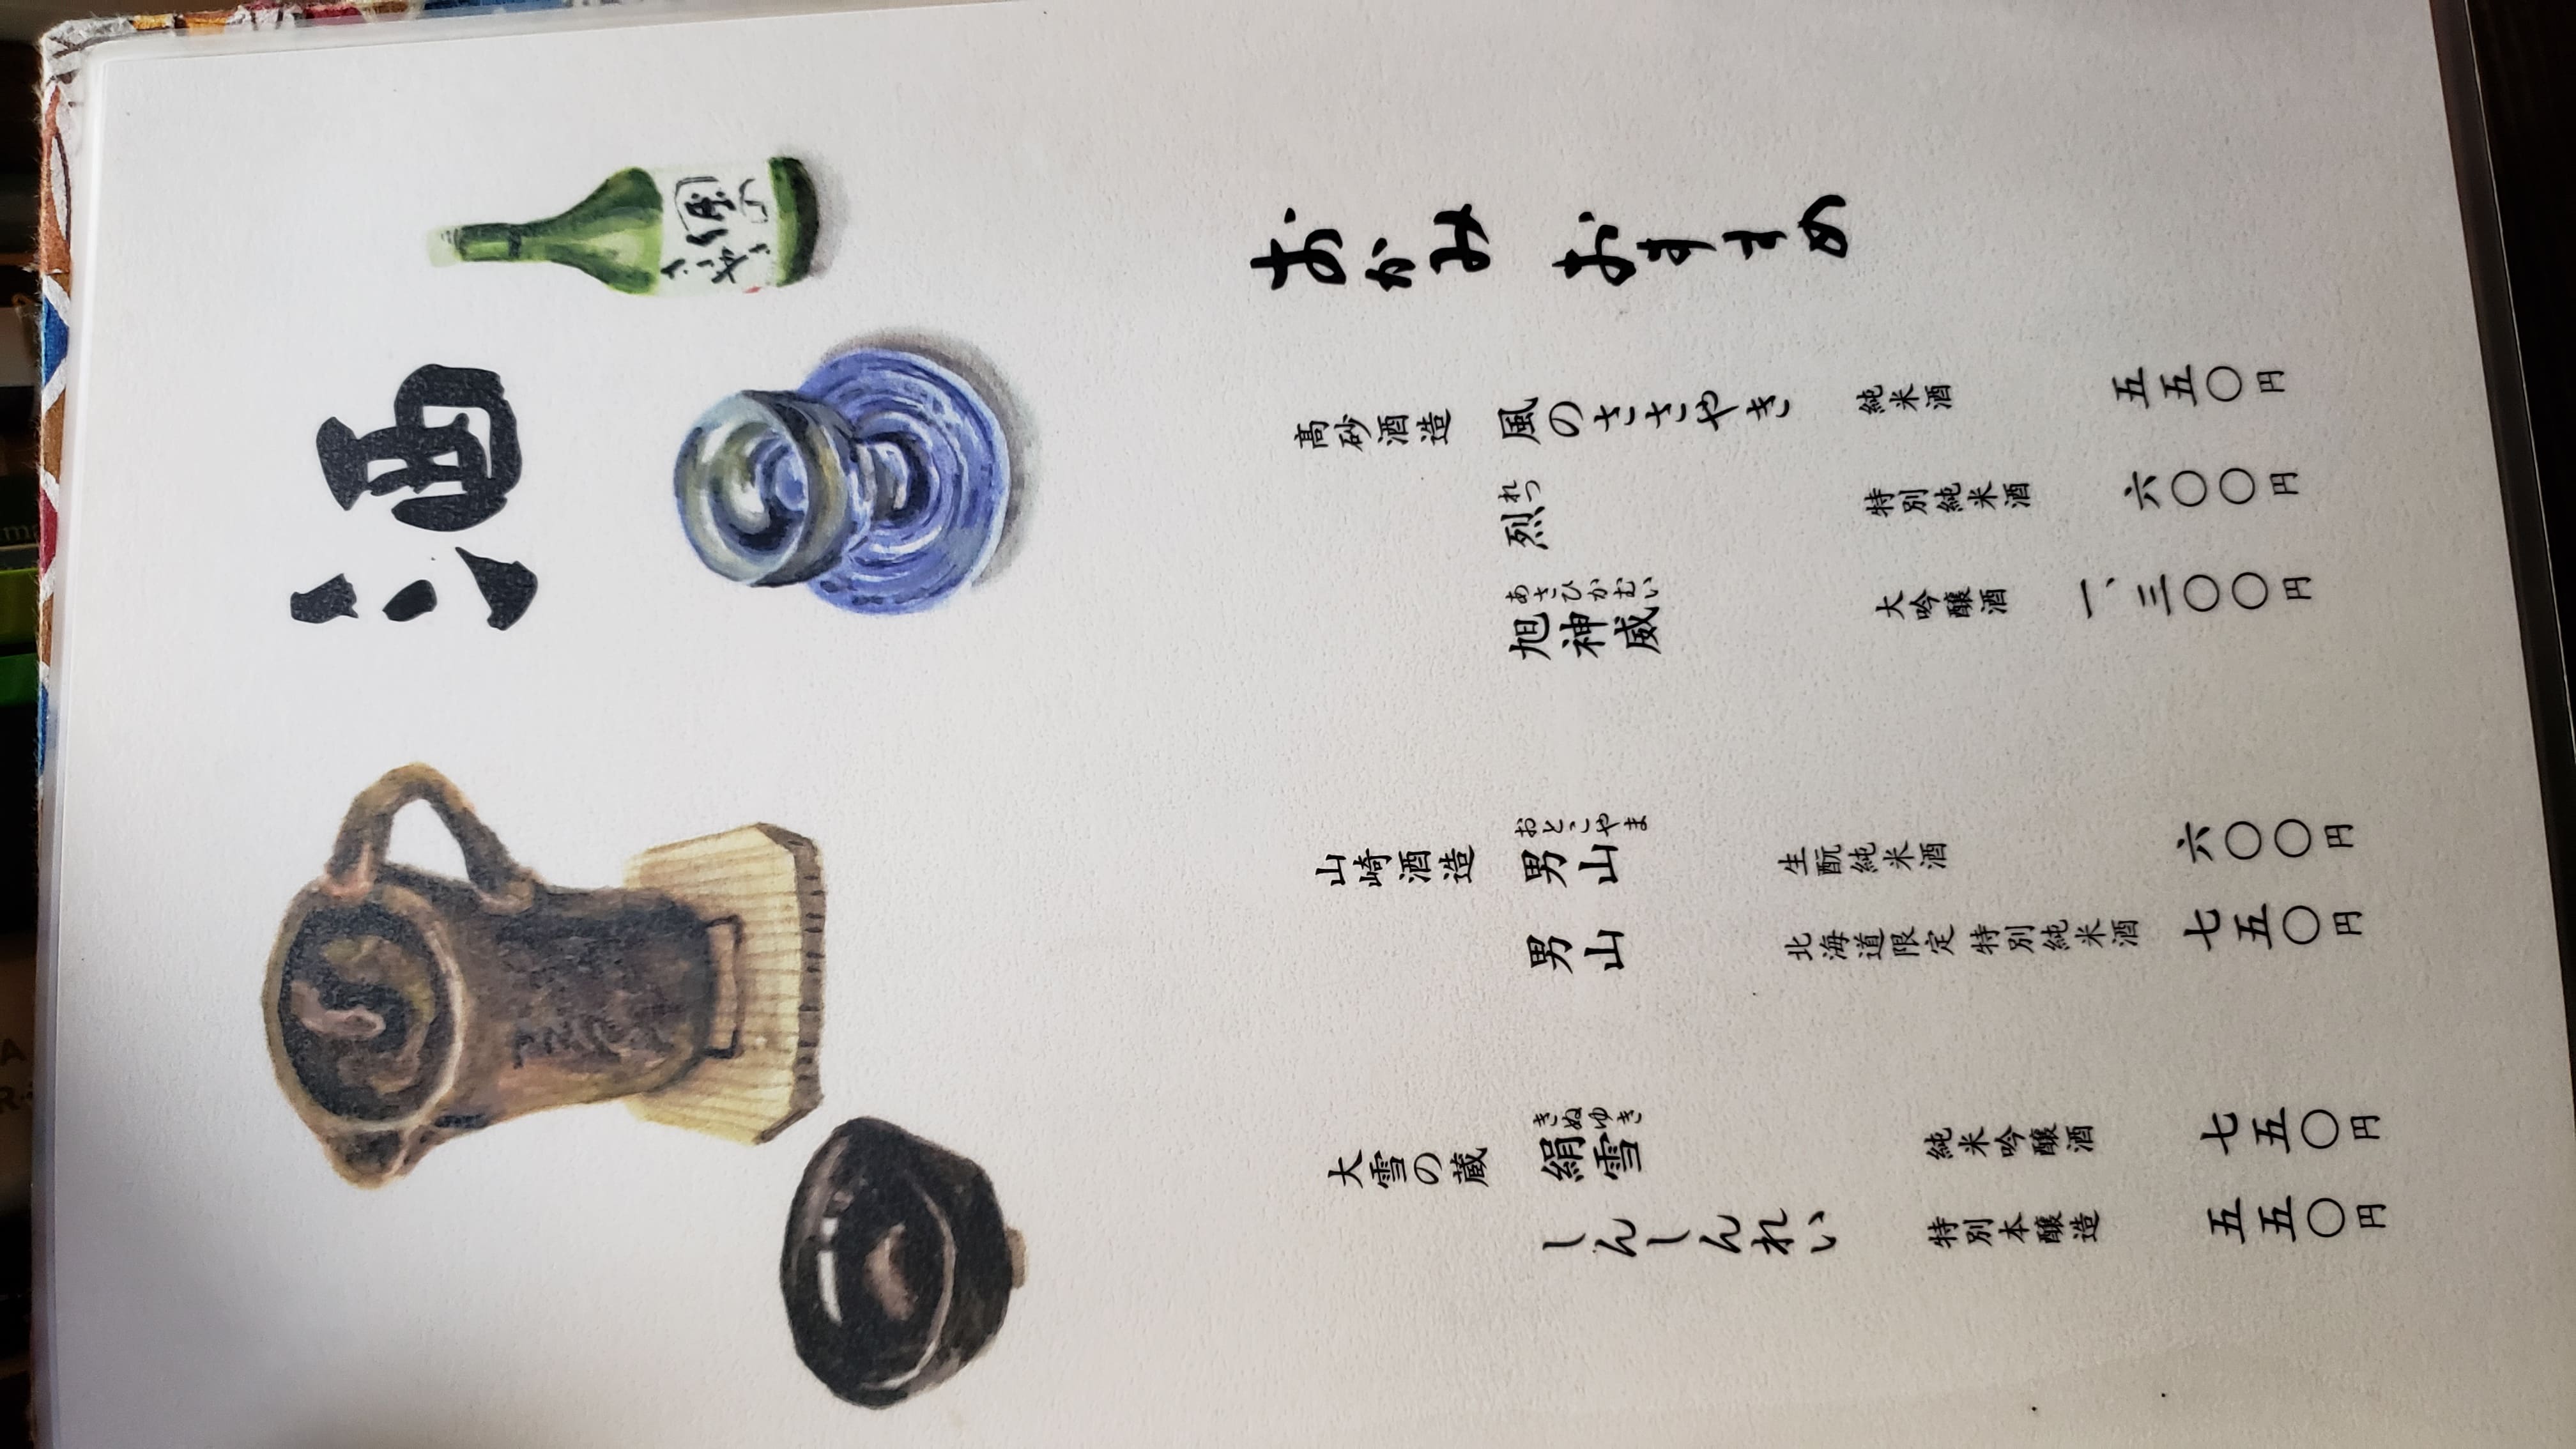 酒
おかみ おすすめ
高砂酒造 風のささやき 純米酒 五五〇円
れつ
烈 特別純米酒 六〇〇円
あさひかむい
旭神威 大吟醸酒 一、三〇〇円
おとこやま
山崎酒造 男山 生酛純米酒 六〇〇円
男山 北海道限定 特別純米酒 七五〇円
きぬゆき
大雪の蔵 絹雪 純米吟醸酒 七五〇円
しんしんれい 特別本醸造 五五〇円